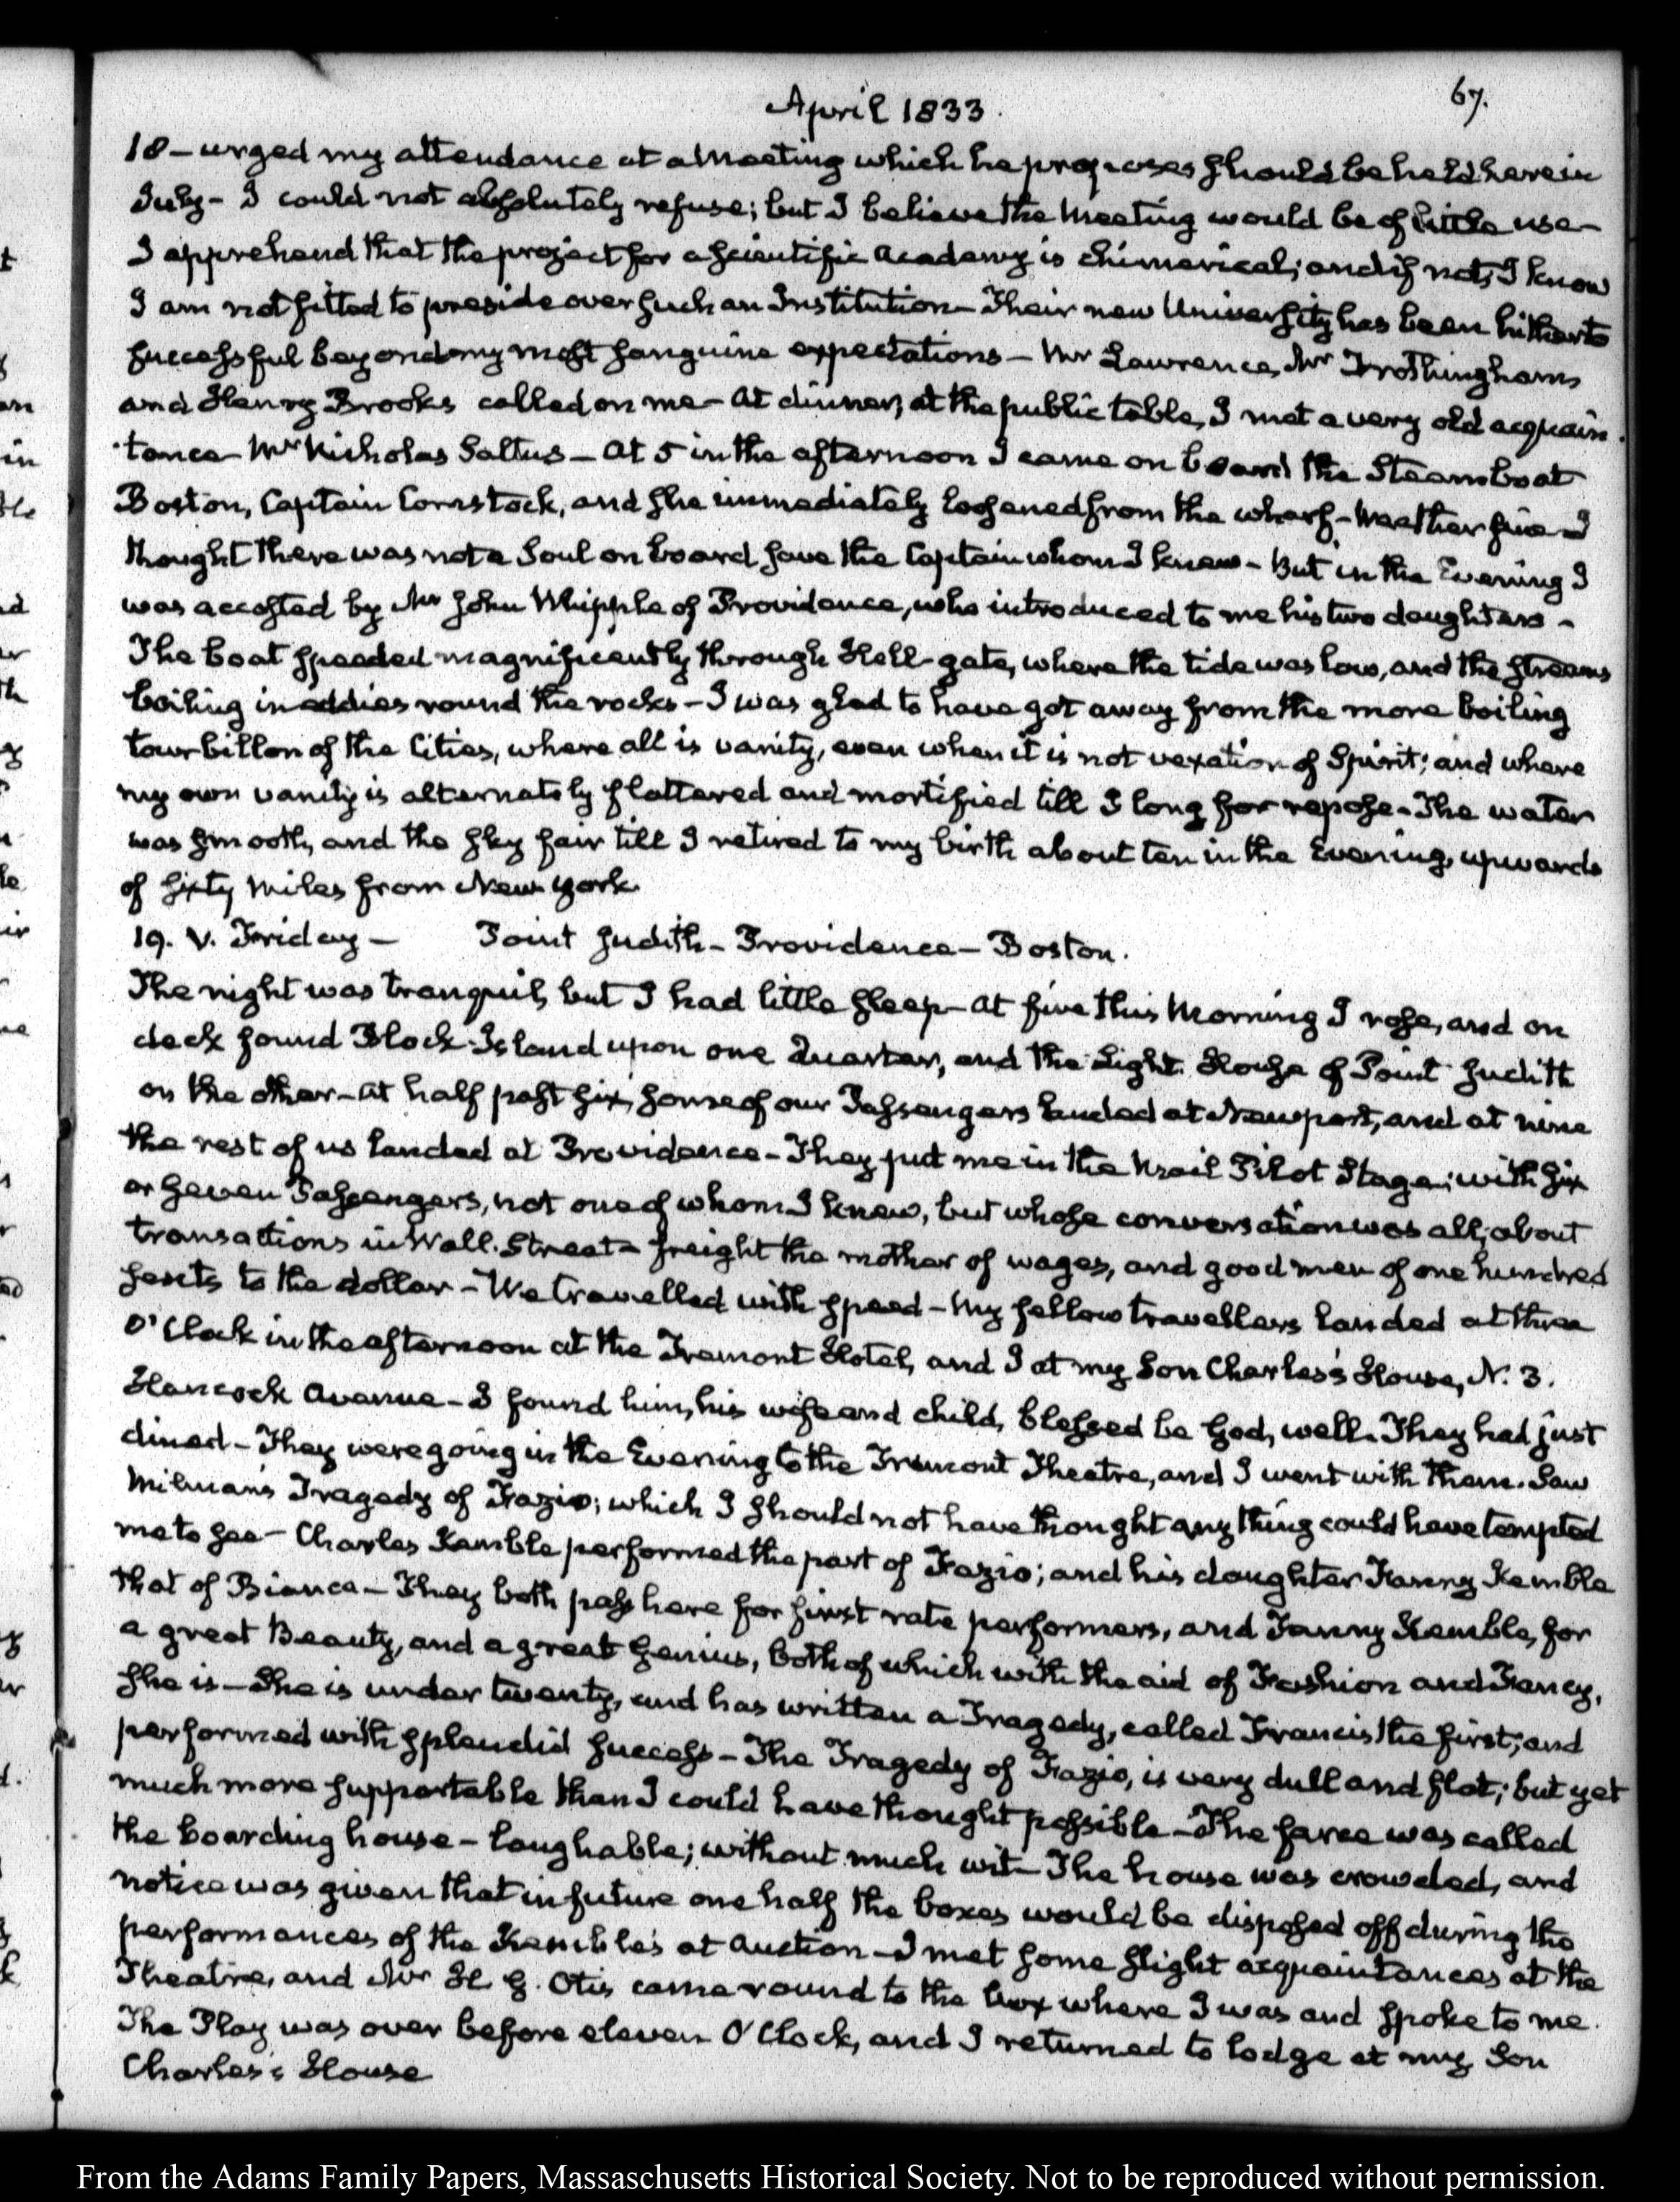 April 1833.
67.
18 – urged my attendance at a Meeting which he proposes should be held here in
July – I could not absolutely refuse; but I believe the Meeting would be of little use –
I apprehend that the project for a scientific Academy is chimerical; and if not, I know
I am not fitted to preside over such an Institution – Their new University has been hitherto
successful beyond my most sanguine expectations – Mr Lawrence, Mr Frothingham
and Henry Brooks called on me – At dinner, at the public table, I met a very old acquain
tance Mr Nicholas Saltus – At 5 in the afternoon I came on board the Steam boat
Boston, Captain Comstock, and she immediately loosened from the wharf – Weather fine – I
thought there was not a Soul on board save the Captain whom I knew – But in the Evening I
was accosted by Mr John Whipple of Providence, who introduced to me his two daughters –
The boat speeded magnificently through Hell-gate, where the tide was low, and the streams
boiling in eddies round the rocks – I was glad to have got away from the more boiling
tourbillon of the Cities, where all is vanity, even when it is not vexation of Spirit; and where
my own vanity is alternately flattered and mortified till I long for repose – The water
was smooth, and the sky fair till I retired to my birth about ten in the Evening, upwards
of sixty Miles from New York.
19. V. Friday – Point Judith – Providence – Boston.
The night was tranquil, but I had little sleep – At five this Morning I rose, and on
deck found Block-Island upon one Quarter, and the Light House of Point Judith
on the other – at half past six, some of our Passengers landed at Newport, and at nine
the rest of us landed at Providence – They put me in the Mail Pilot Stage; with six
or seven Passengers, not one of whom I knew, but whose conversation was all, about
transactions in Wall. Street – freight the mother of wages, and good men of one hundred
sents to the dollar – We travelled with speed – My fellow travellers landed at three
O'Clock in the afternoon at the Tremont Hotel, and I at my Son Charles's House, N. 3.
Hancock Avenue – I found him, his wife and child, blessed be God, well. They had just
dined – They were going in the Evening to the Tremont Theatre, and I went with them. Saw
Milman's Tragedy of Fazio; which I should not have thought any thing could have tempted
me to see – Charles Kemble performed the part of Fazio; and his daughter Fanny Kemble
that of Bianca – They both pass here for first rate performers, and Fanny Kemble, for
a great Beauty, and a great Genius, both of which with the aid of Fashion and Fancy,
she is – She is under twenty, and has written a Tragedy, called Francis the first; and
performed with splendid success – The Tragedy of Fazio, is very dull and flat; but yet
much more supportable than I could have thought possible – The farce was called
the boarding house – laughable; without much wit – The house was crowded, and
notice was given that in future one half the boxes would be disposed off during the
performances of the Kemble's at Auction – I met some slight acquaintances at the
Theatre, and Mr H. G. Otis came round to the box where I was and spoke to me.
The Play was over before eleven O'Clock, and I returned to lodge at my Son
Charles's House
From the Adams Family Papers, Massachusetts Historical Society. Not to be reproduced without permission.